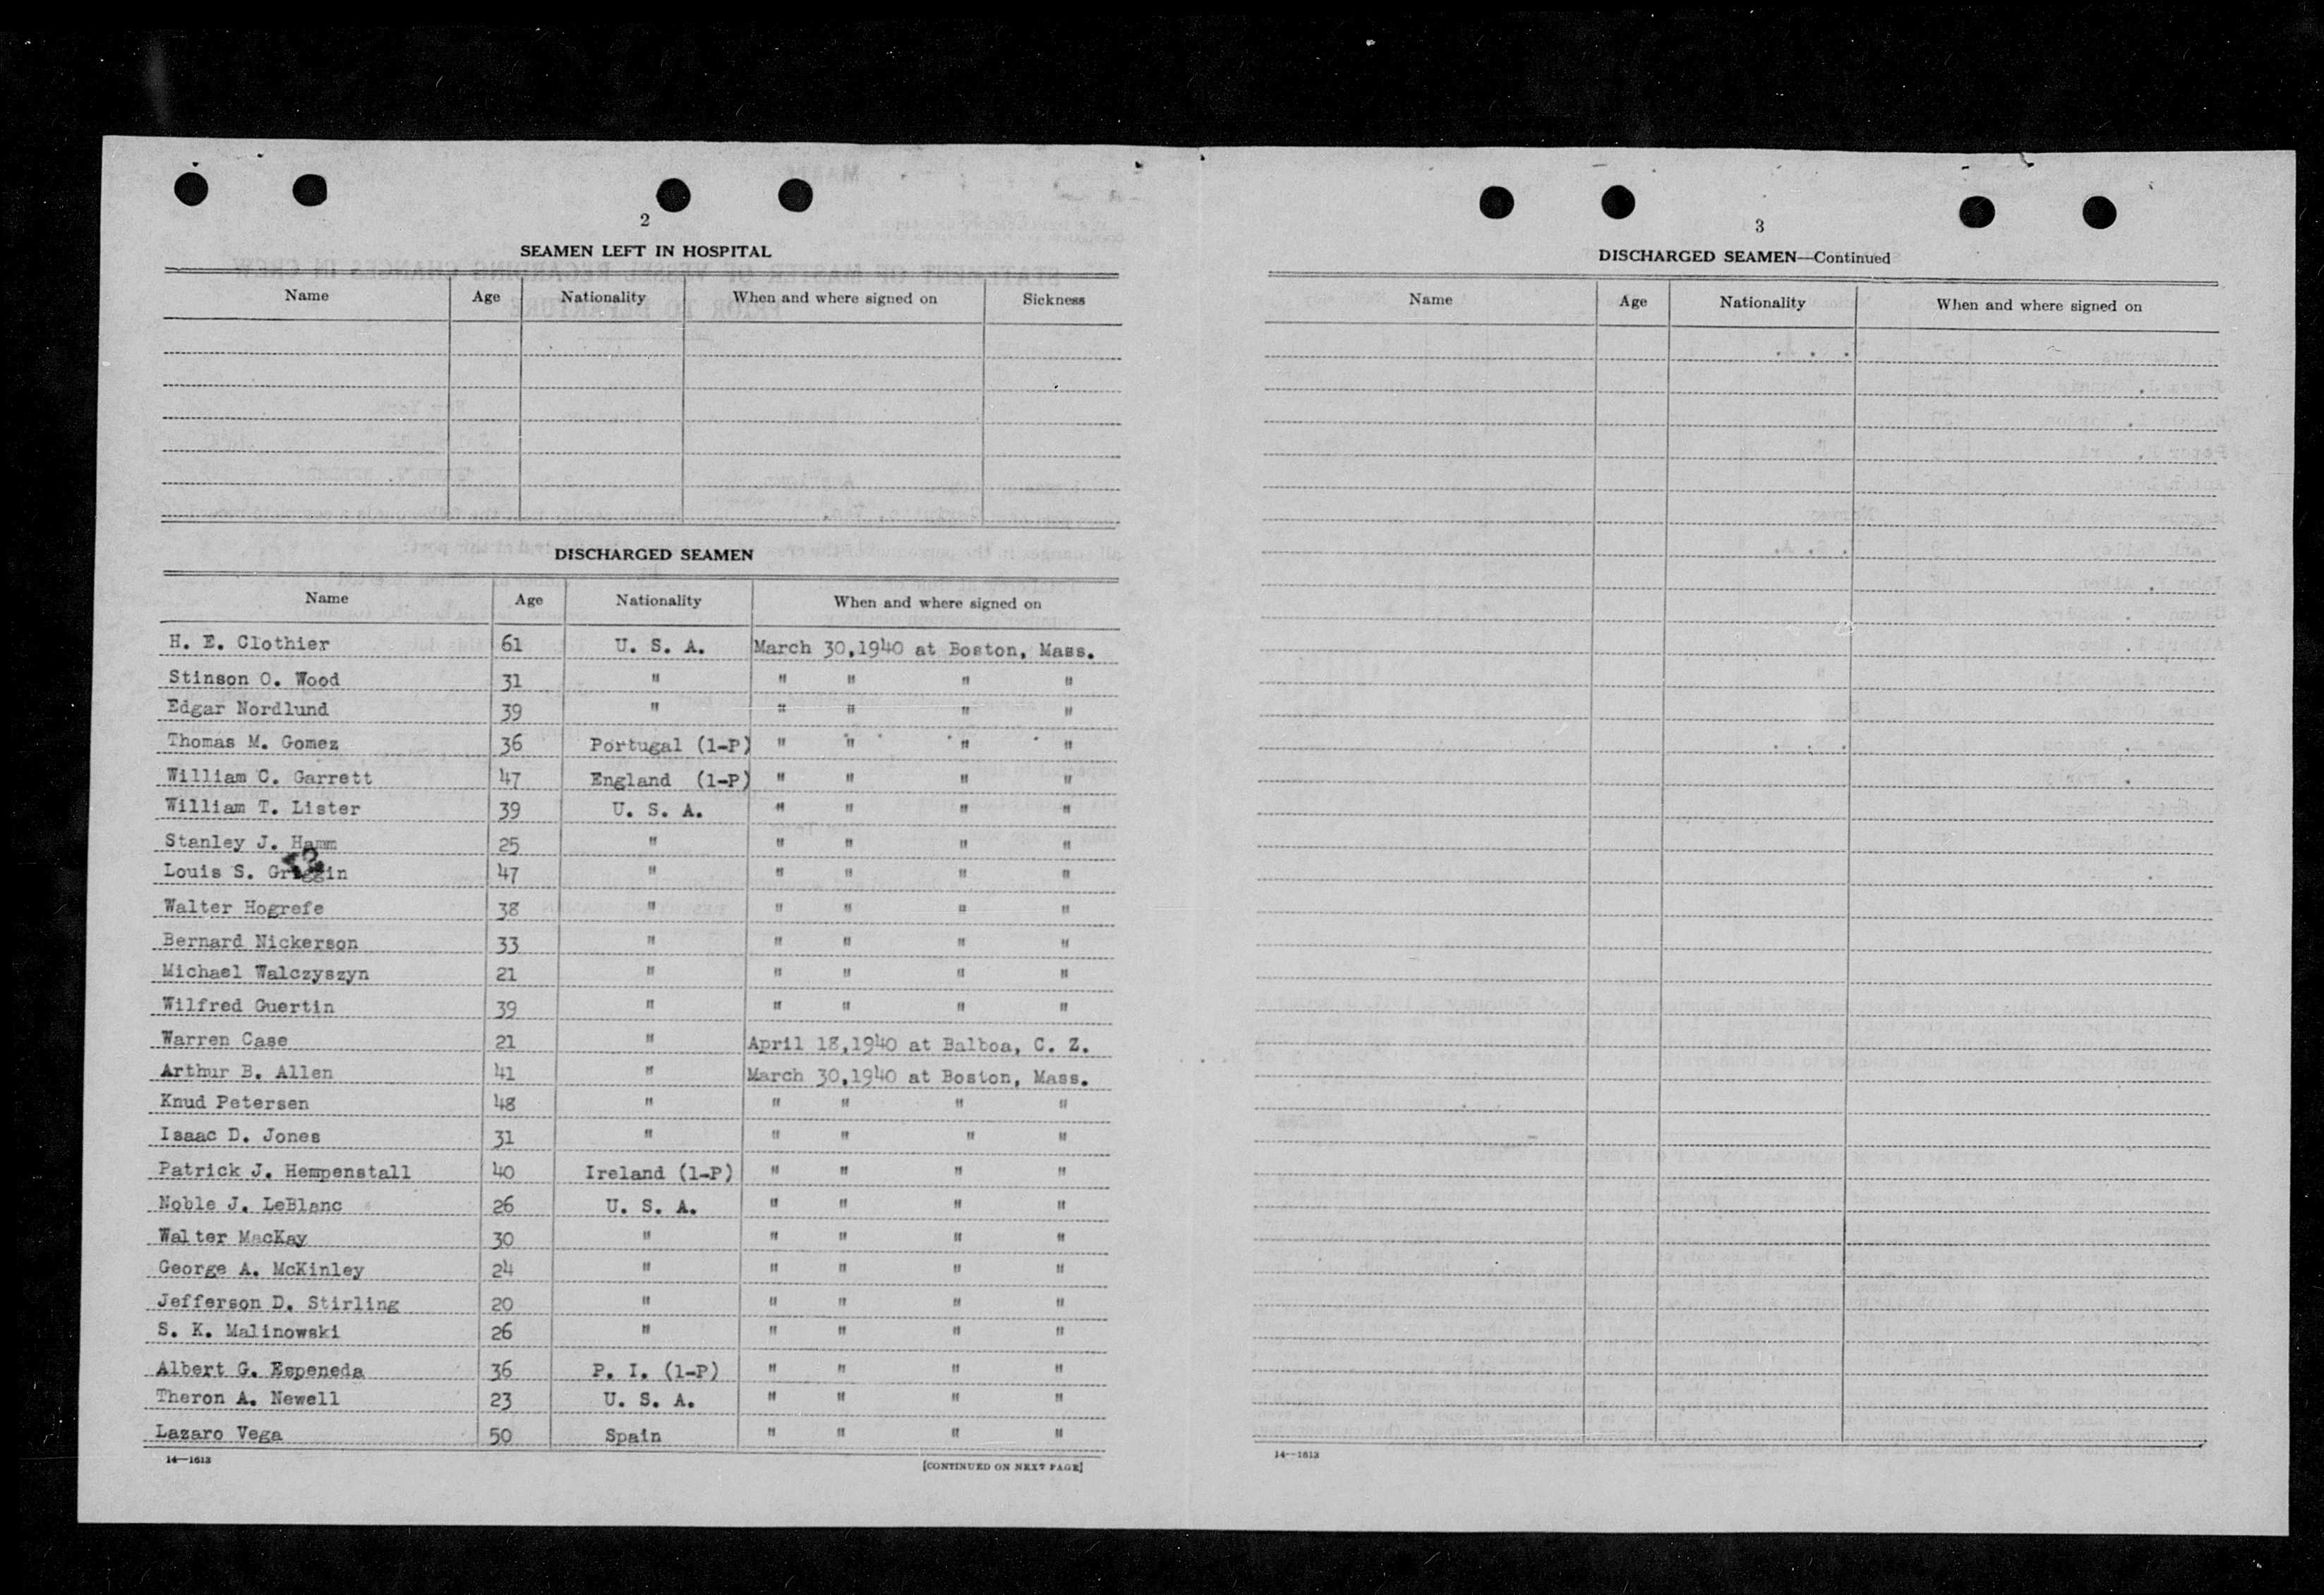 2
SEAMEN LEFT IN HOSPITAL
Name Age Nationality When and where signed on Sickness
DISCHARGED SEAMEN
Name Age Nationality When and where signed on
H. E. Clothier 61 U. S. A. March 30,1940 at Boston, Mass.
Stinson O. Wood 31 " " " " "
Edgar Nordlund 39 " " " " "
Thomas M. Gomez 36 Portugal (1-P) " " " "
William C. Garrett 47 England (1-P) " " " "
William T. Lister 39 U. S. A. " " " "
Stanley J. Hamm 25 " " " " "
Louis S. 47 " " " " "
Walter Hogrefe 38 " " " " "
Bernard Nickerson 33 " " " " "
Michael Walczyszyn 21 " " " " "
Wilfred Guertin 39 " " " " "
Warren Case 21 " April 18,1940 at Balboa, C. Z.
Arthur B. Allen 41 " March 30,1940 at Boston, Mass.
Knud Petersen 48 " " " " "
Isaac D. Jones 31 " " " " "
Patrick J. Hempenstall 40 Ireland (1-P) " " " "
Noble J. LeBlanc 26 U. S. A. " " " "
Walter MacKay 30 " " " " "
George A. McKinley 24 " " " " "
Jefferson D. Stirling 20 " " " " "
S. K. Malinowski 26 " " " " "
Albert G. Espeneda 36 P. I. (1-P) " " " "
Theron A. Newell 23 U. S. A. " " " "
Lazaro Vega 50 Spain " " " "
14—1613
[CONTINUED ON NEXT PAGE]
3
DISCHARGED SEAMEN—Continued
Name Age Nationality When and where signed on
14—1613